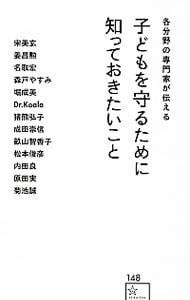 各分野の専門家が伝える
子どもを守るために
知っておきたいこと
宋美玄
姜昌勲
名取宏
森戸やすみ
堀成美
Dr.Koala
猪熊弘子
成田崇信
畝山智香子
松本俊彦
内田良
原田実
菊池誠
148